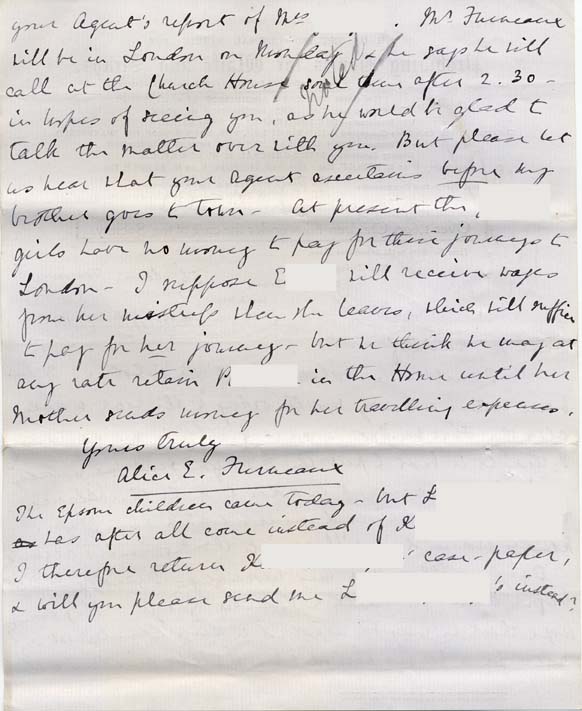 your Agent's report of Mrs . Mr Furneaux
will be in London on Monday & he says he will
call at the Church House some time after 2.30 -
in hopes of seeing you, as he would be glad to
talk the matter over with you. But please let
us hear what your agent ascertains before my
brother goes to town - At present the
girls have no money to pay for their journeys to
London - I suppose E will receive wages
from her mistress when she leaves, which will suffice
to pay for her journey - but we think we may at
any rate retain P in the Home until her
Mother sends money for her travelling expenses.
Yours truly
Alice E. Furneaux
The Epsom children came today - but L
as has after all come instead of K
I therefore return K 's case-paper,
& will you please send me L 's instead?